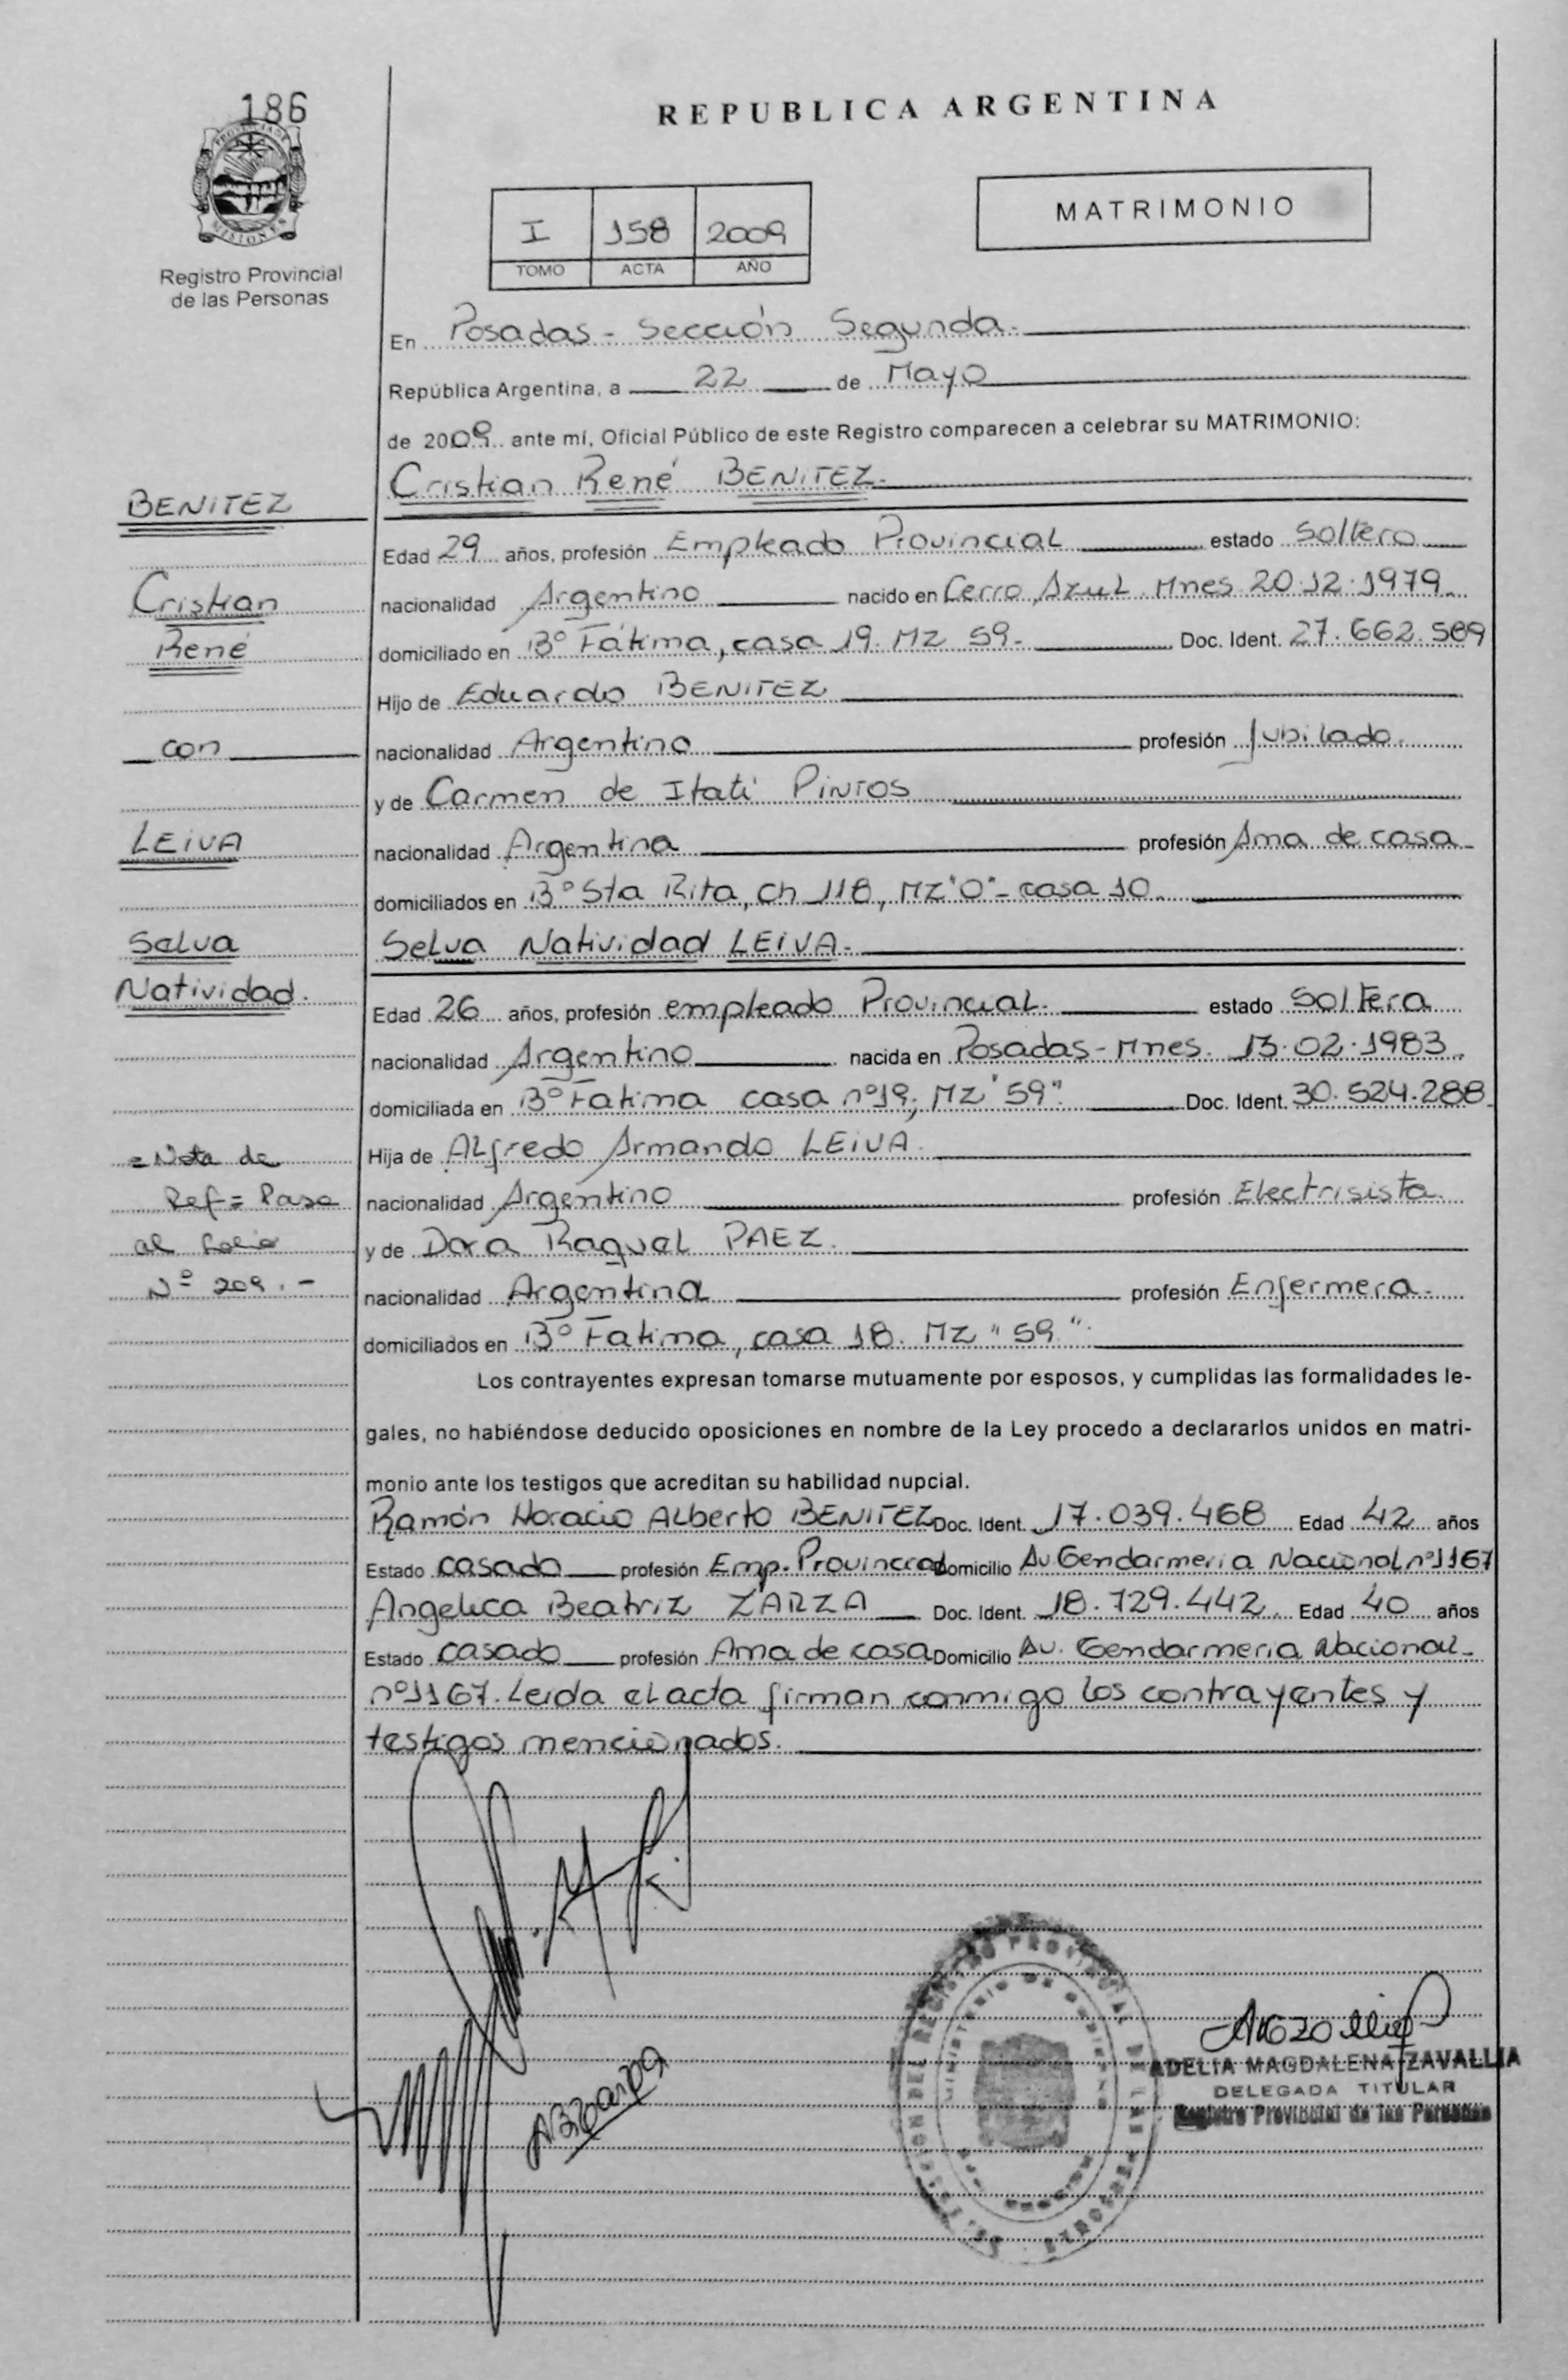 186
REPUBLICA ARGENTINA
MATRIMONIO
I 158 2009
TOMO ACTA AÑO
Registro Provincial
de las Personas
En Posadas - Sección Segunda.
República Argentina, a 22 de Mayo
de 2009 ante mí, Oficial Público de este Registro comparecen a celebrar su MATRIMONIO:
Cristian René BENITEZ.
BENITEZ
Edad 29 años, profesión Empleado Provincial estado Soltero
Cristian
nacionalidad Argentino nacido en Cerro Azul Mnes 20.12.1979.
René
domiciliado en B° Fátima, casa 19. Mz 59. Doc. Ident. 27.662.589
Hijo de Eduardo BENITEZ
con
nacionalidad Argentino profesión Jubilado.
y de Carmen de Itatí PINTOS
LEIVA
nacionalidad Argentina profesión Ama de casa
domiciliados en B° Sta Rita, Ch 118, Mz "O" - casa 10.
Selva
Selva Natividad LEIVA.
Natividad.
Edad 26 años, profesión empleado Provincial. estado Soltera
nacionalidad Argentino nacida en Posadas - Mnes. 13.02.1983.
domiciliada en B° Fatima casa n°19, Mz "59". Doc. Ident. 30.524.288.
= Nota de
Hija de Alfredo Armando LEIVA.
Ref = Pasa
nacionalidad Argentino profesión Electrisista.
al folio
y de Dora Raquel PAEZ.
Nº 209.-
nacionalidad Argentina profesión Enfermera.
domiciliados en B° Fatima, casa 18. Mz "59".
Los contrayentes expresan tomarse mutuamente por esposos, y cumplidas las formalidades le-
gales, no habiéndose deducido oposiciones en nombre de la Ley procedo a declararlos unidos en matri-
monio ante los testigos que acreditan su habilidad nupcial.
Ramón Horacio Alberto BENITEZ Doc. Ident. 17.039.468 Edad 42 años
Estado casado profesión Emp. Provincial Domicilio Av. Gendarmeria Nacional n°1167
Angelica Beatriz ZARZA Doc. Ident. 18.729.442. Edad 40 años
Estado casado profesión Ama de casa Domicilio Av. Gendarmeria Nacional
n°1167. Leida el acta firman conmigo los contrayentes y
testigos mencionados.
ADELIA MAGDALENA ZAVALLIA
DELEGADA TITULAR
Registro Provincial de las Personas